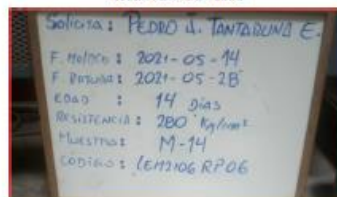 Solicita: PEDRO J. TANTABUNA E.
F. Moldeo: 2021-05-14
F. Rotura: 2021-05-28
EDAD : 14 Dias
RESISTENCIA: 280 Kg/cm²
Muestra: M-14
CODIGO: LEM2106 RP06